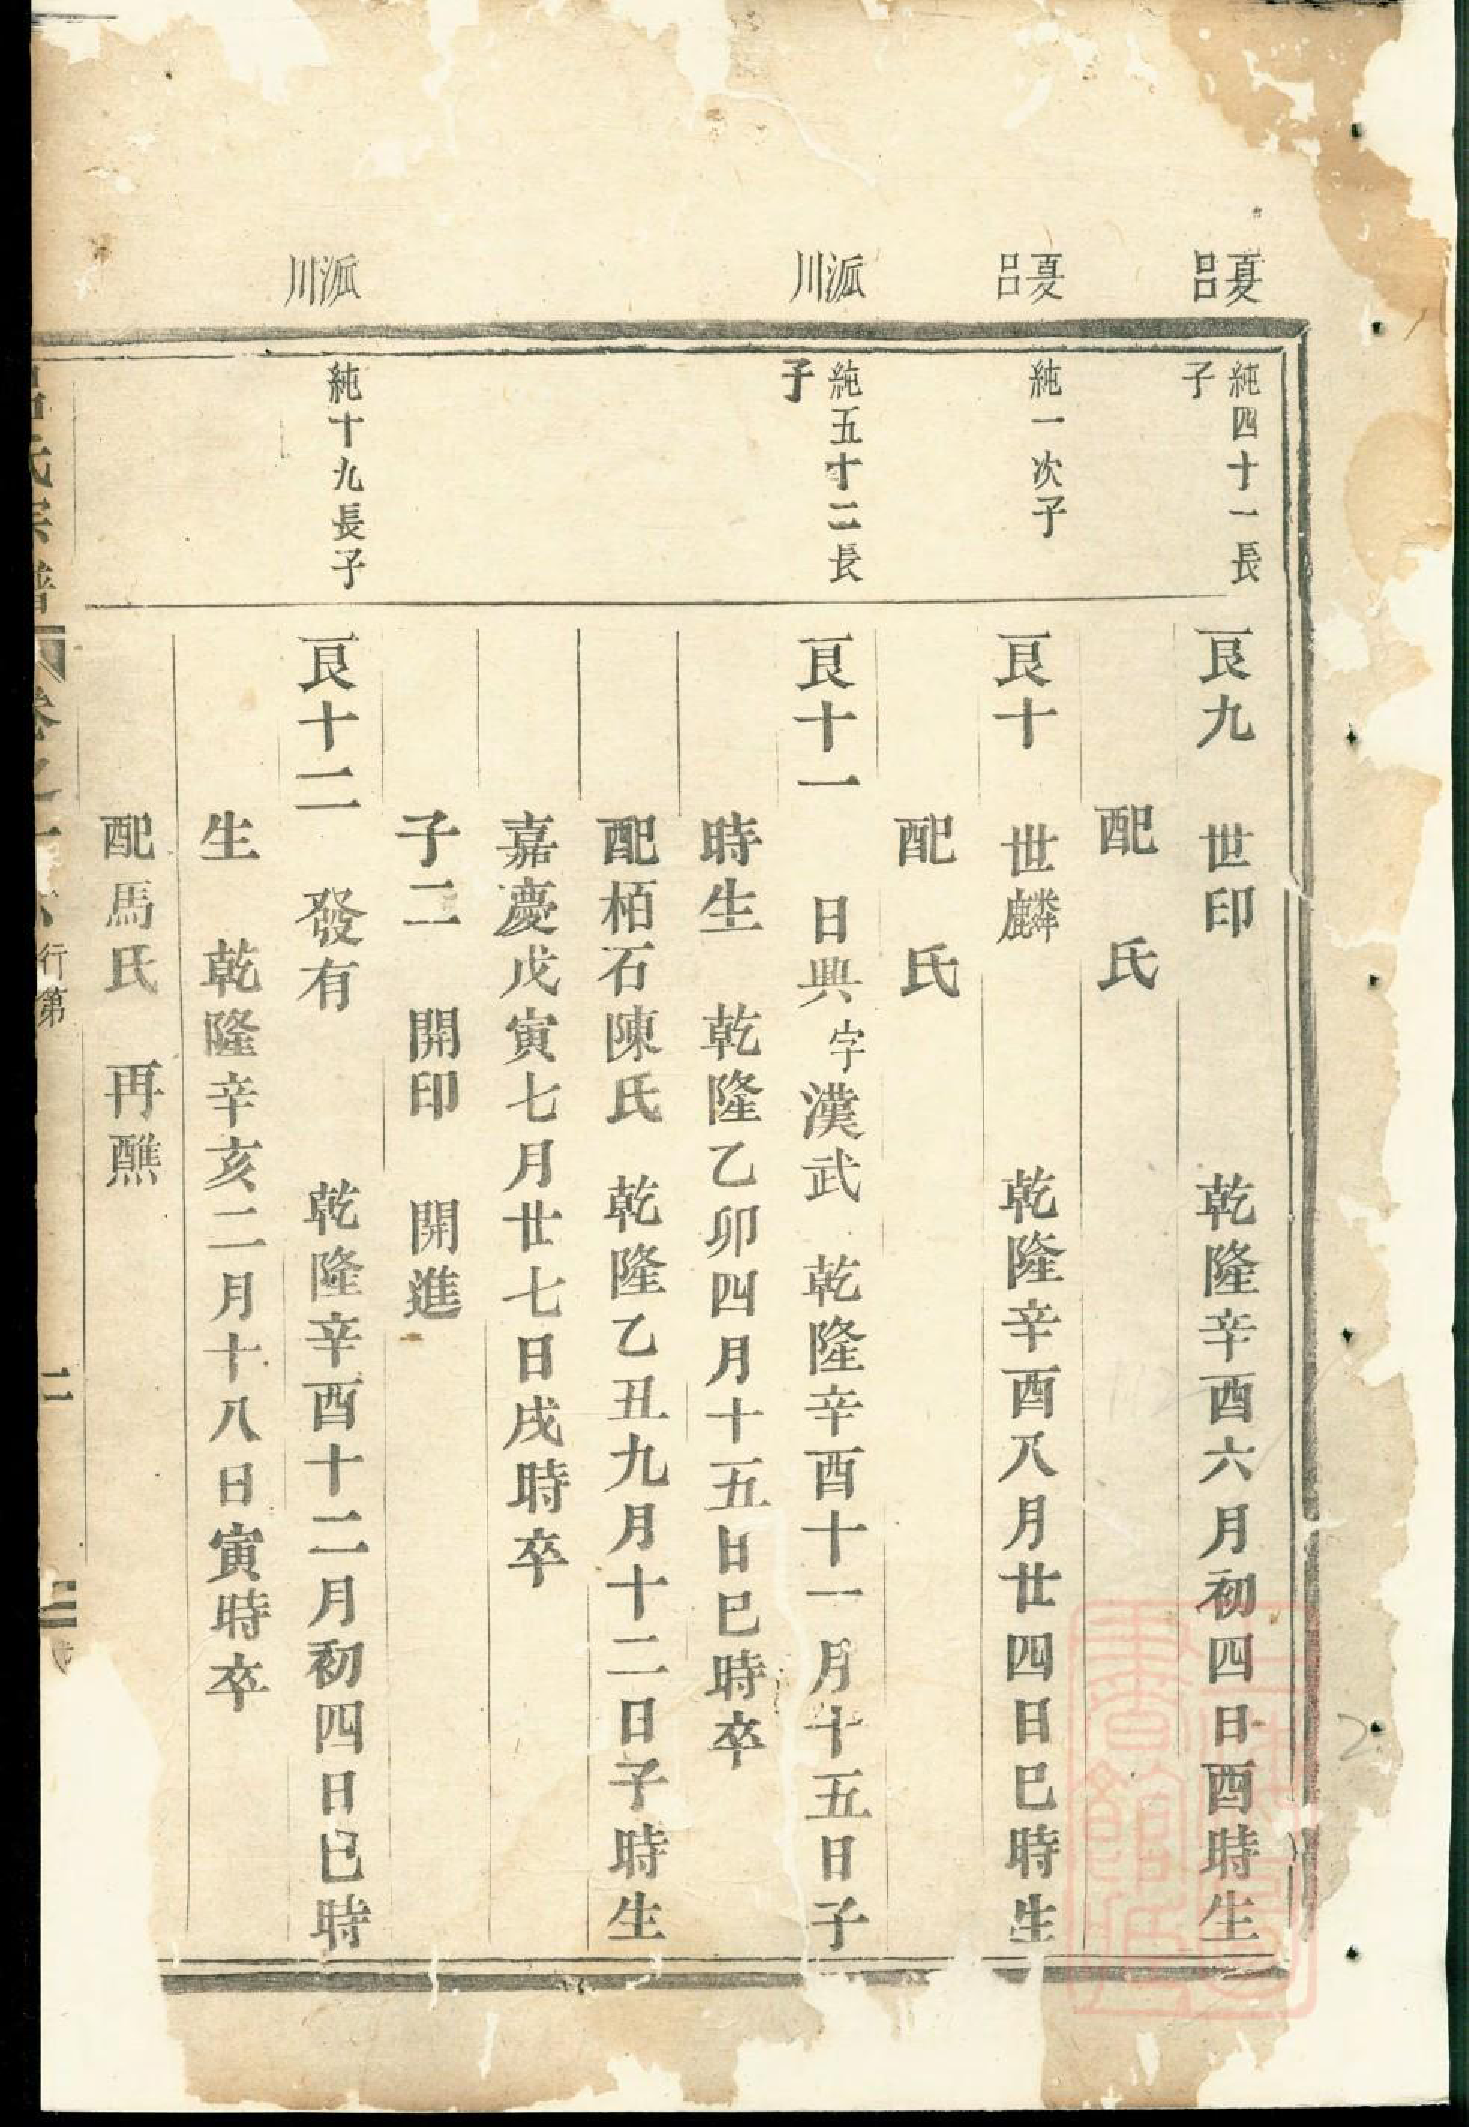 夏呂
純四十一長子
艮九 世印 乾隆辛酉六月初四日酉時生
配 氏
夏呂
純一次子
艮十 世麟 乾隆辛酉八月廿四日巳時生
配 氏
派川
純五十二長子
艮十一 日典字漢武 乾隆辛酉十一月十五日子
時生 乾隆乙卯四月十五日巳時卒
配栢石陳氏 乾隆乙丑九月十二日子時生
嘉慶戊寅七月廿七日戌時卒
子二 開印 開進
派川
純十九長子
艮十二 發有 乾隆辛酉十二月初四日巳時
生 乾隆辛亥二月十八日寅時卒
配馬氏 再醮
氏宗譜 卷之 行第 二